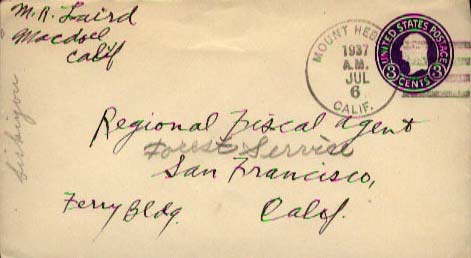 M. R. Laird
Macdoel
Calif
MOUNT HEB
1937
A.M.
JUL
6
CALIF.
UNITED STATES POSTAGE
3 CENTS 3
Siskiyou
Regional Fiscal Agent
Forest Service
San Francisco,
Ferry Bldg. Calif.